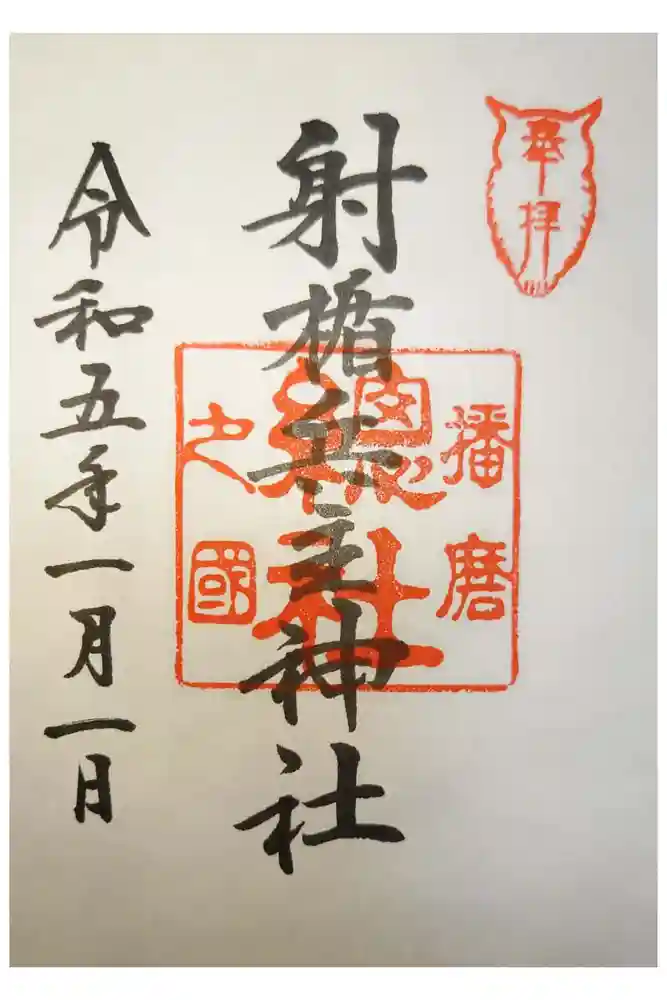 奉拝
播磨
総社
之國
射楯兵主神社
令和五年一月一日